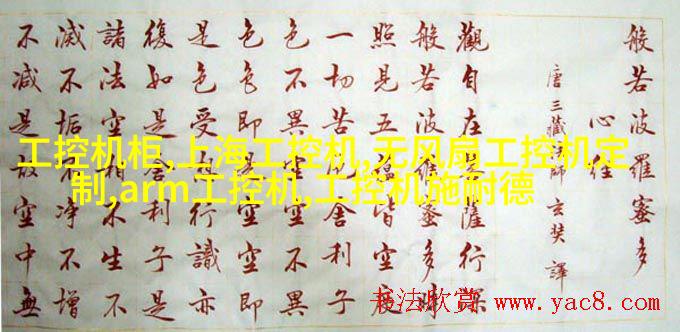 般若波羅蜜多
心经
唐三藏法師玄奘譯
觀自在菩薩行深
般若波羅蜜多時
照見五蘊皆空度
一切苦厄舍利子
色不異空空不異
色色即是空空即
是色受想行識亦
復如是舍利子是
諸法空相不生不
滅不垢不淨不增
不減是故空中無
工控机柜,上海工控机,无风扇工控机定
制,arm工控机,工控机施耐德
书法欣赏 www.yac8.com